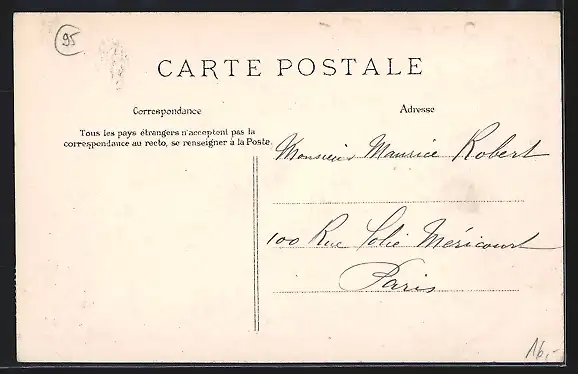 95
CARTE POSTALE
Correspondance
Adresse
Tous les pays étrangers n'acceptent pas la
correspondance au recto, se renseigner à la Poste.
Monsieur Maurice Robert
100 Rue Folie Méricourt
Paris
16,-